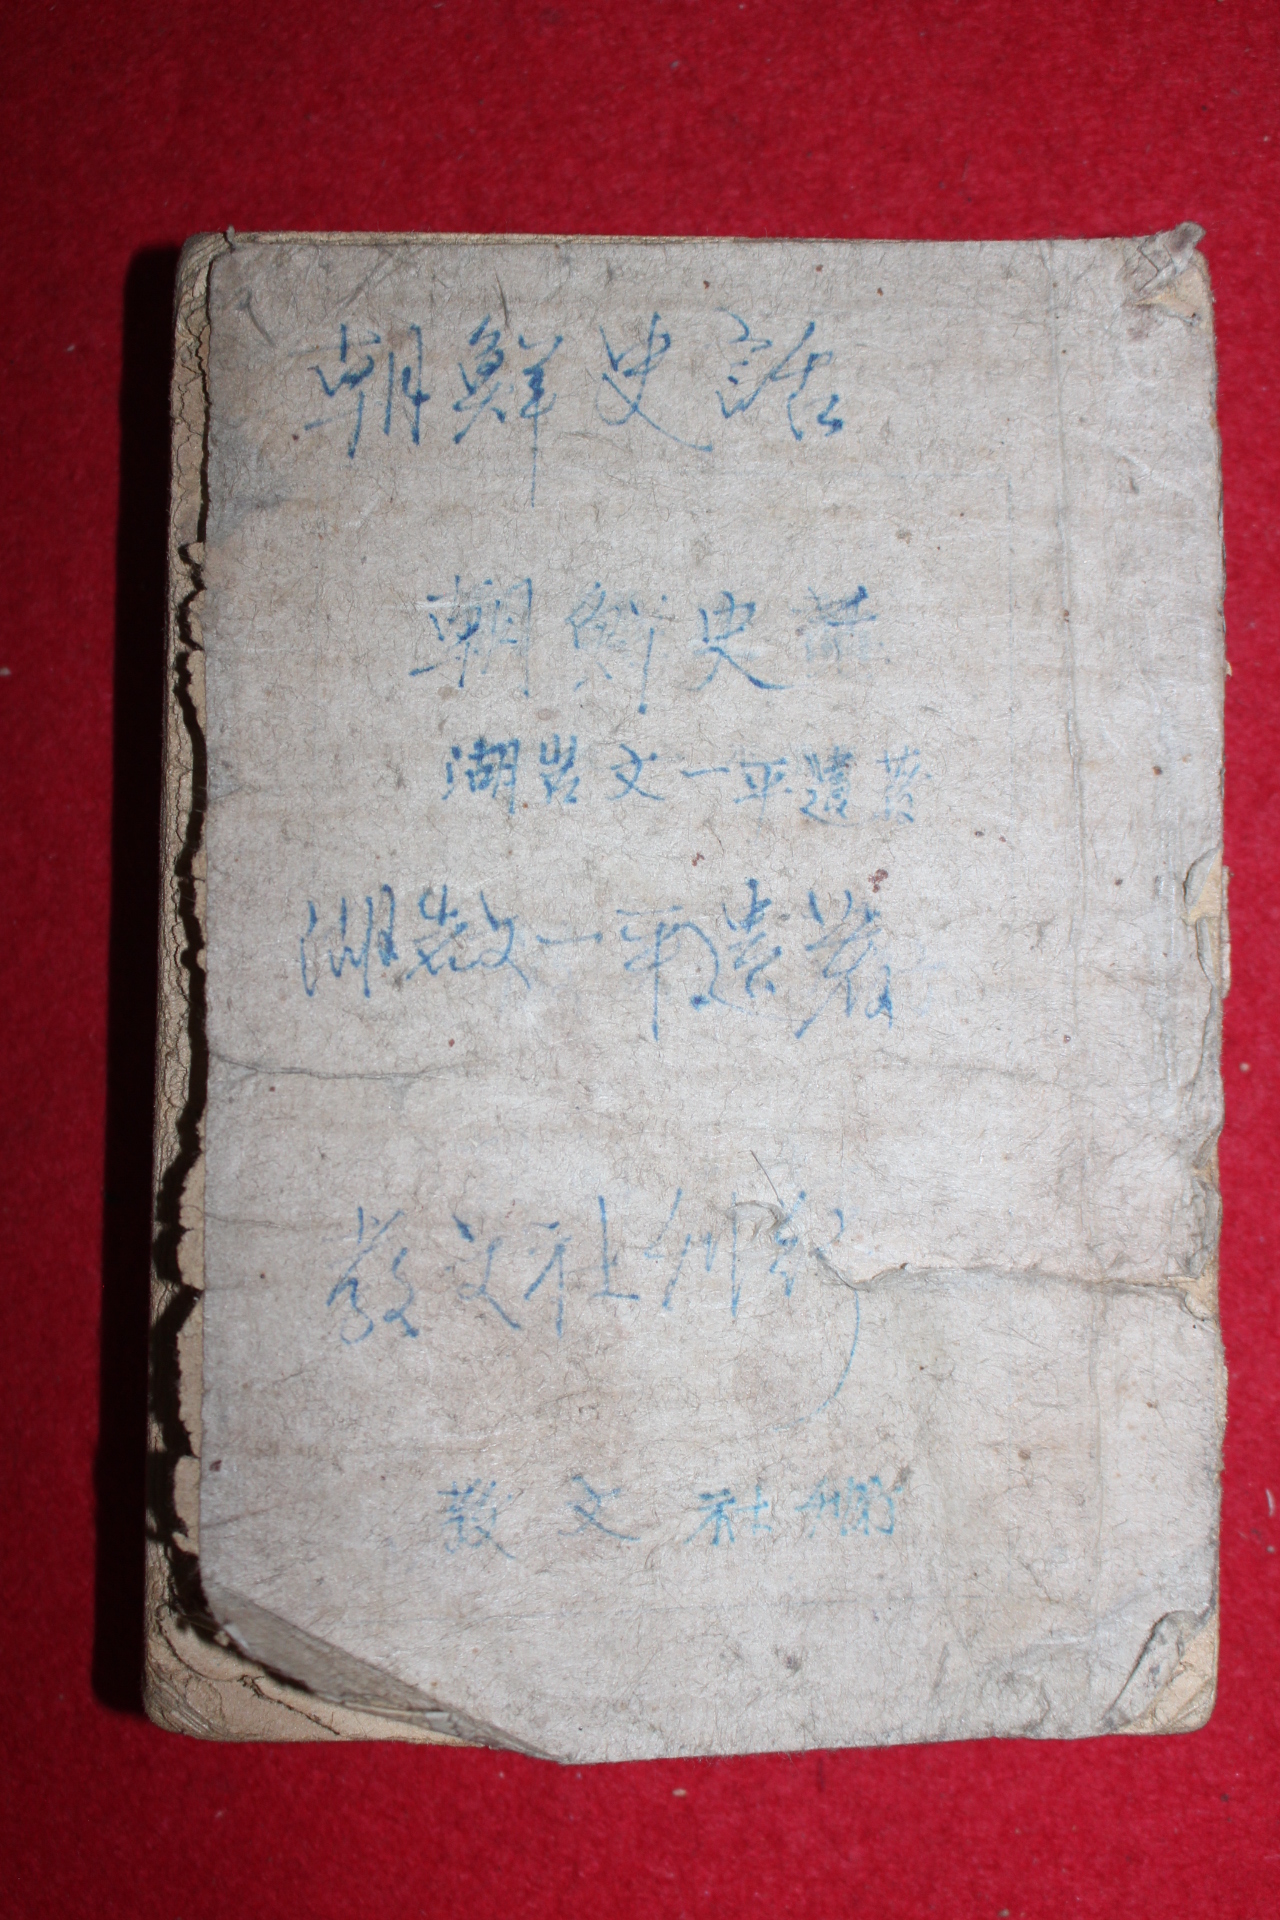 朝鮮史話
朝鮮史話
湖岩文一平遺著
湖岩文一平遺著
文社
文社